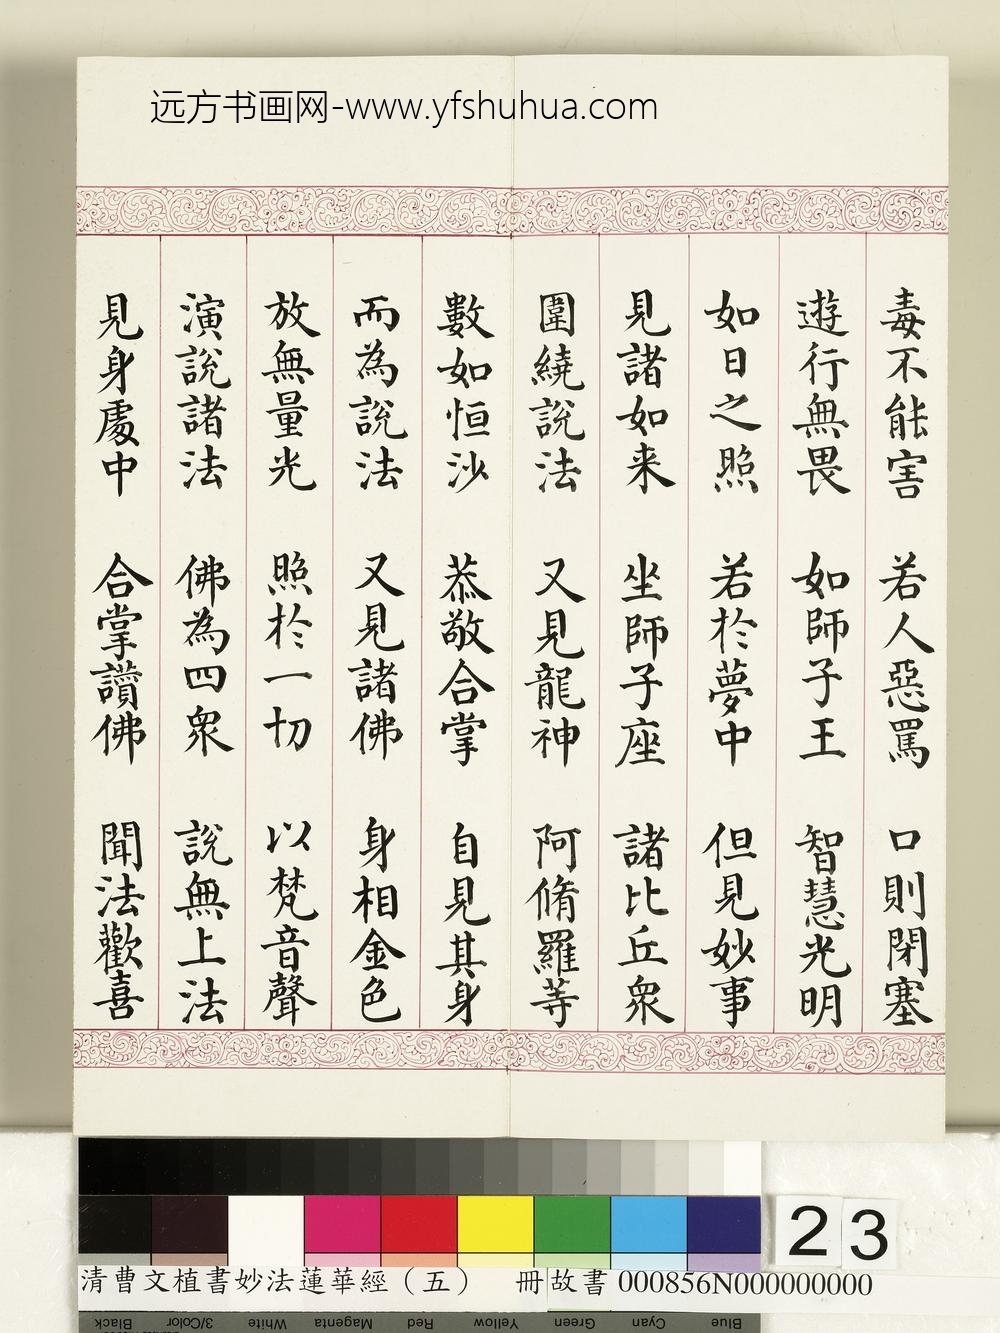 远方书画网-www.yfshuhua.com
毒不能害 若人惡罵 口則閉塞
遊行無畏 如師子王 智慧光明
如日之照 若於夢中 但見妙事
見諸如来 坐師子座 諸比丘眾
圍繞說法 又見龍神 阿脩羅等
數如恒沙 恭敬合掌 自見其身
而為說法 又見諸佛 身相金色
放無量光 照於一切 以梵音聲
演說諸法 佛為四眾 說無上法
見身處中 合掌讚佛 聞法歡喜
23
清曹文植書妙法蓮華經（五） 冊 故書000856N000000000
Black 3/Color White Magenta Red Yellow Green Cyan Blue